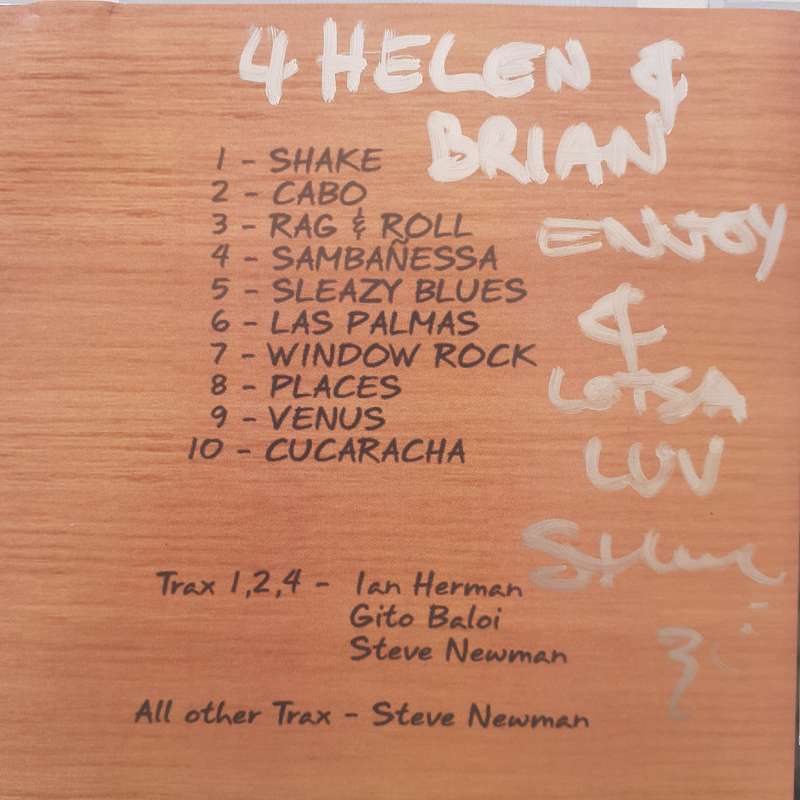 4 HELEN &
BRIAN
ENJOY
&
LOTSA
LUV
Steve
1 - SHAKE
2 - CABO
3 - RAG & ROLL
4 - SAMBAÑESSA
5 - SLEAZY BLUES
6 - LAS PALMAS
7 - WINDOW ROCK
8 - PLACES
9 - VENUS
10 - CUCARACHA
Trax 1,2,4 - Ian Herman
Gito Baloi
Steve Newman
All other Trax - Steve Newman